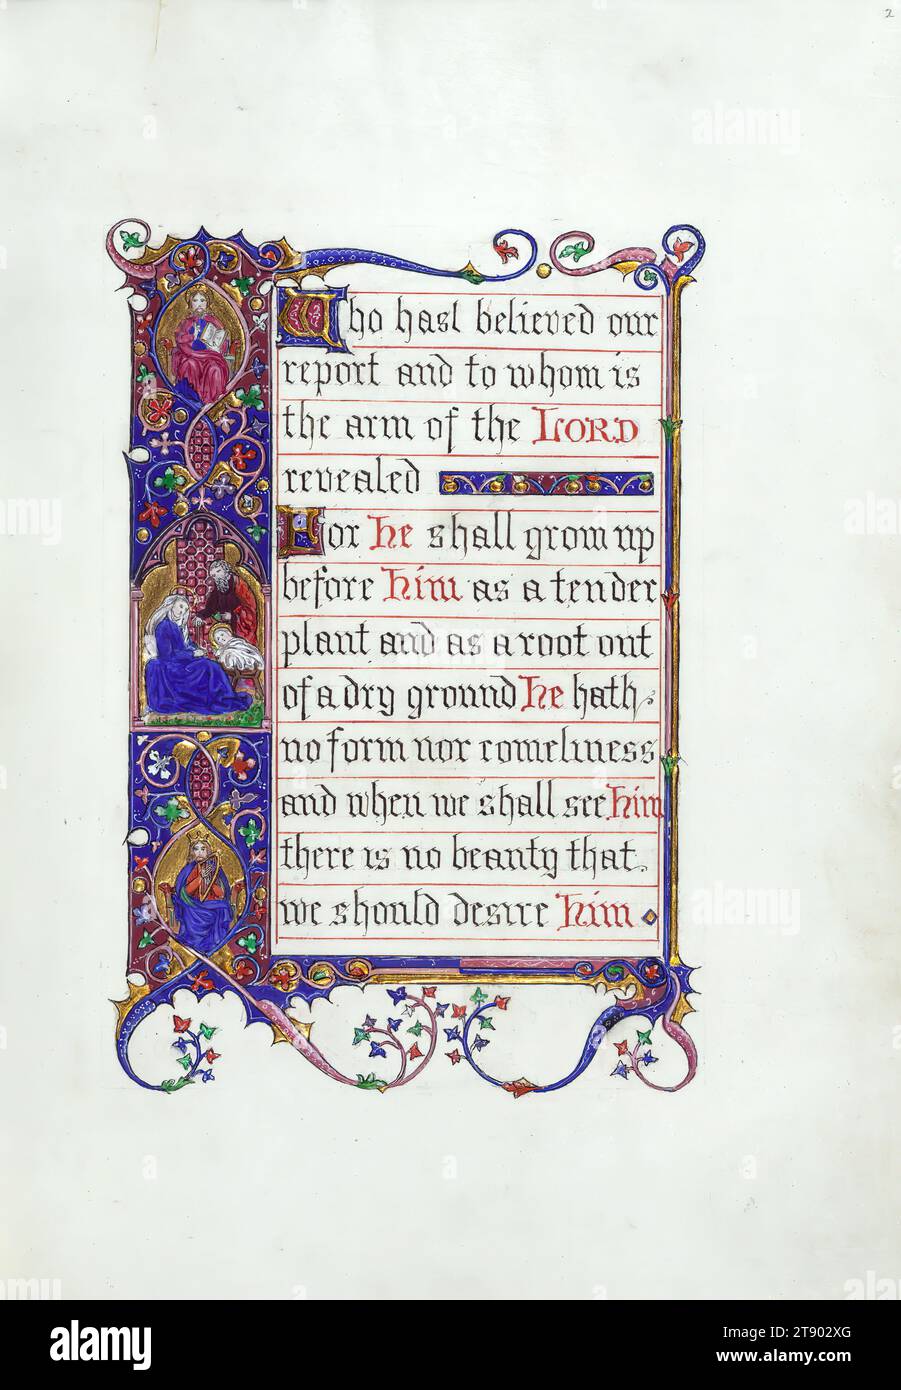 2
Who hast believed our
report and to whom is
the arm of the LORD
revealed
For He shall grow up
before Him as a tender
plant and as a root out
of a dry ground He hath
no form nor comeliness
and when we shall see Him
there is no beauty that
we should desire Him
alamy
Image ID: 2T902XG
www.alamy.com